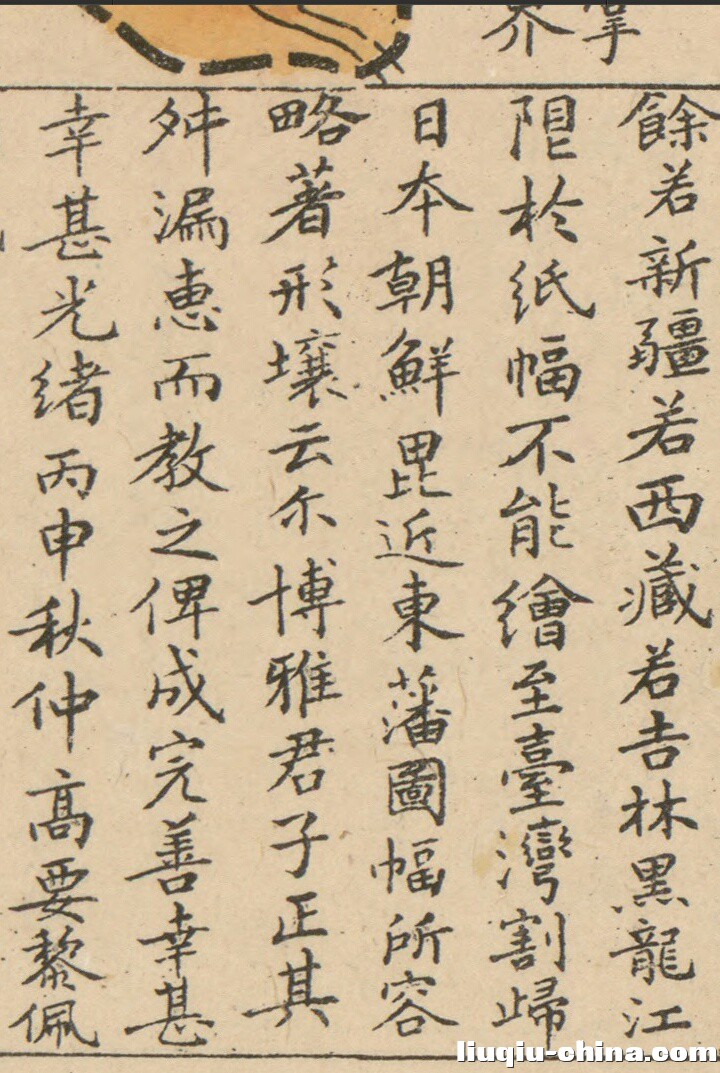 掌
界
餘若新疆若西藏若吉林黑龍江
限於紙幅不能繪至臺灣割歸
日本朝鮮毘近東藩圖幅所容
略著形壤云尔博雅君子正其
舛漏惠而教之俾成完善幸甚
幸甚光緒丙申秋仲高要黎佩
liuqiu-china.com